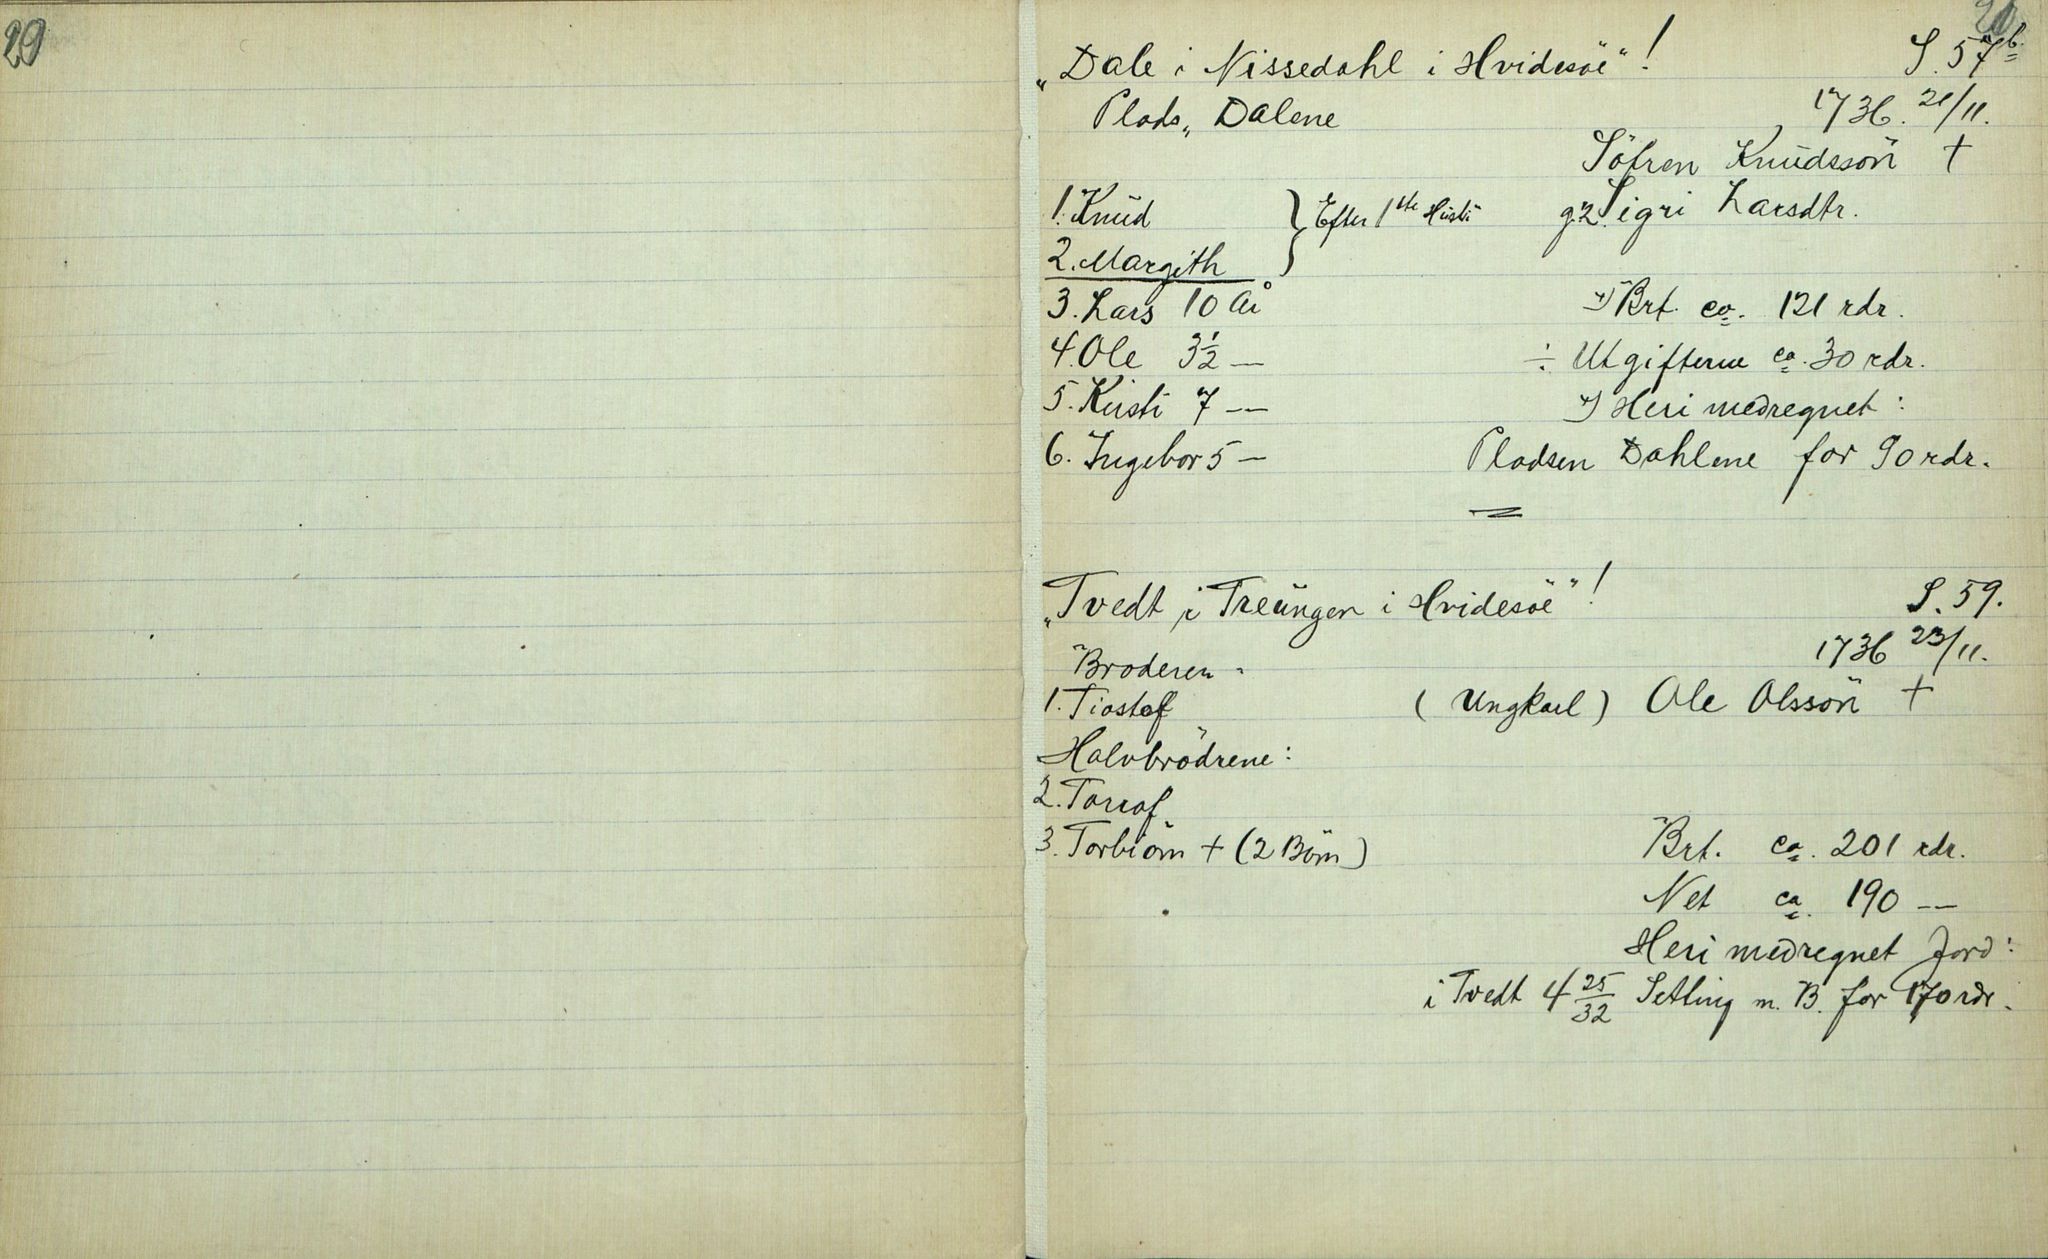 29
„Dale i Nissedahl i Hvidesöe“! S. 57b.
Plads„ Dalene 1736. 21/11.
Söfren Knudssön †
1. Knud } Efter 1ste Hustr. g.2. Sigri Larsdtr.
2. Margith
3. Lars 10 År *) Brt. ca. 121 rdr.
4. Ole 3½ — ÷ Utgifterne ca. 30 rdr.
5. Kirsti 7 — *) Heri medregnet:
6. Ingebor 5 — Pladsen Dahlene for 90 rdr.
„Tvedt i Treungen i Hvidesöe“! S. 59.
1736 23/11.
Broderen
1. Tiostof (Ungkarl) Ole Olssön †
Halvbrödrene:
2. Torrof
3. Torbiörn † (2 Börn) Brt. ca. 201 rdr.
Net ca. 190 —
Heri medregnet Jord:
i Tvedt 4 25/32 Setting m. B. for 170 rdr.